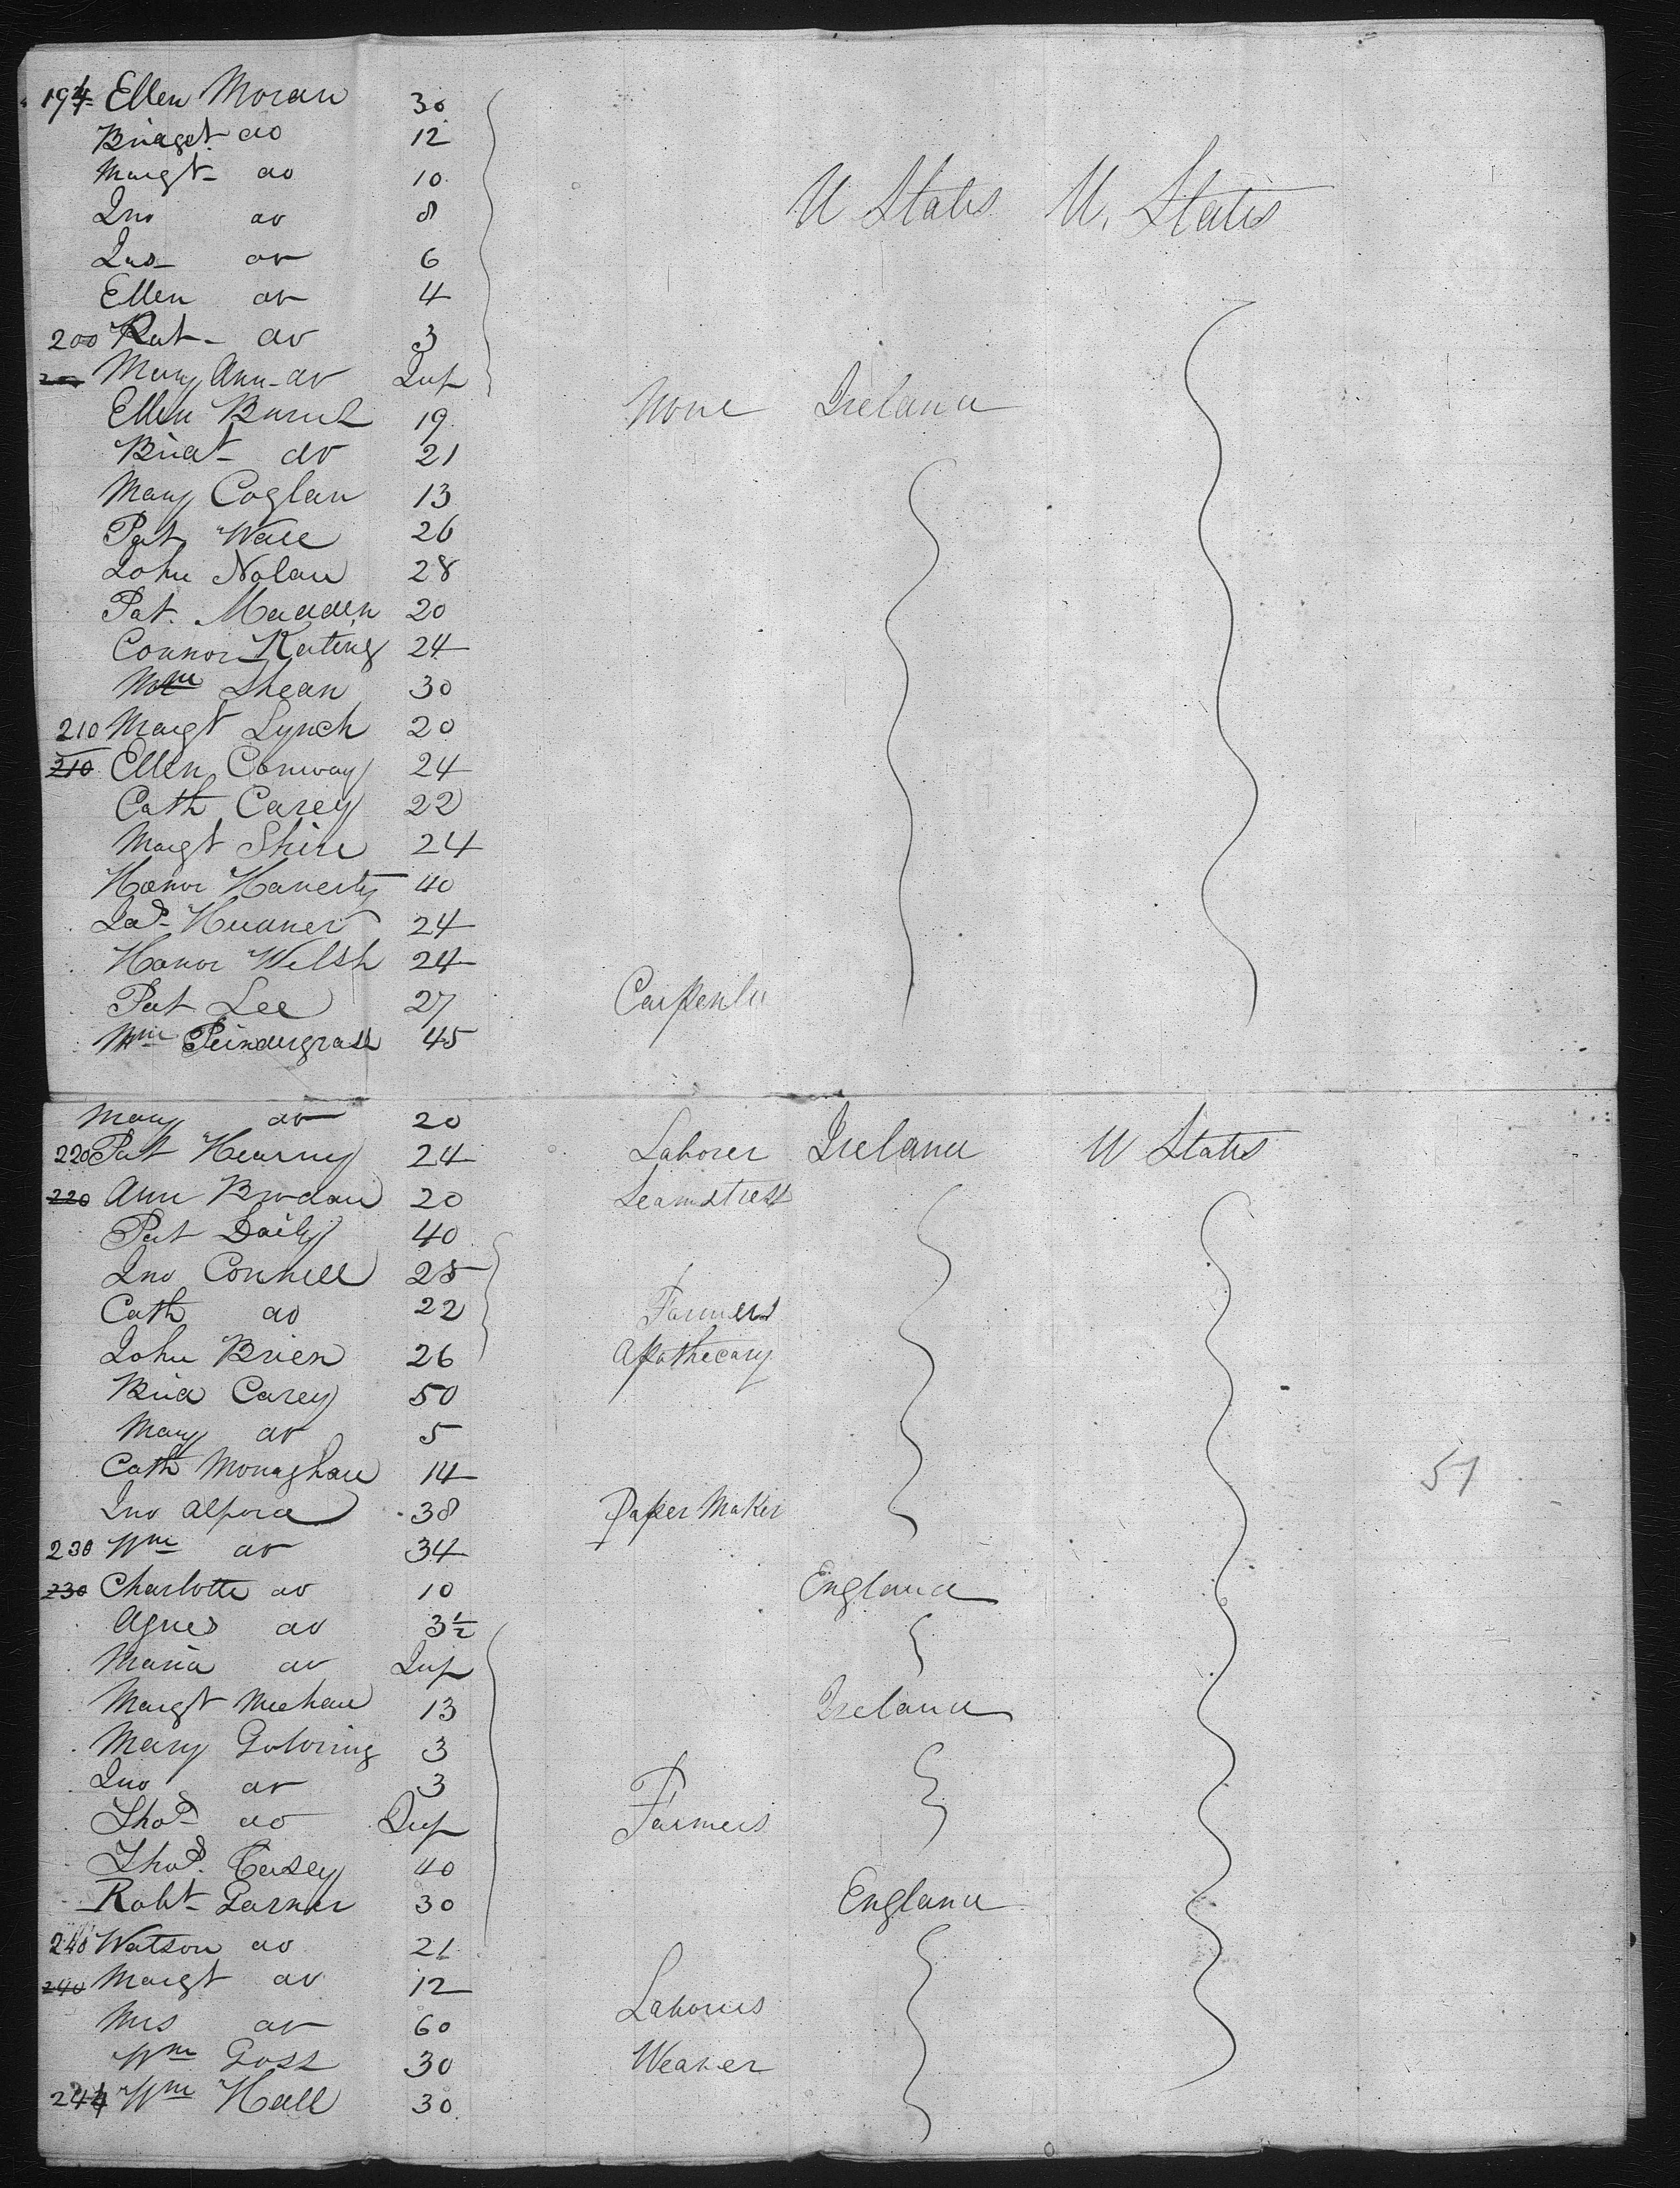 194 Ellen Moran 30
Bridget do 12
Margt do 10
Jno do 8 U States U. States
Jas do 6
Ellen do 4
200 Pat do 3
Mary Ann do Inf
Ellen Burns 19 None Ireland
Brid do 21
Mary Coglan 13
Pat Wall 26
John Nolan 28
Pat. Madden 20
Connor Keating 24
Wm Shean 30
210 Margt Lynch 20
210 Ellen Conway 24
Cath Carey 22
Margt Shire 24
Honor Hanerty 40
Jas 24
Honor Welsh 24
Pat Lee 27 Carpenter
Wm Pendergrass 45
Mary do 20
220 Pat Kearney 24 Laborer Ireland U States
220 Ann Brodan 20 Seamstress
Pat Daily 40
Jno Connell 28
Cath do 22 Farmers
John Brien 26 Apothecary
Brid Carey 50
Mary do 5
Cath Monaghan 14 51
Jno Alford 38 Paper Maker
230 Wm do 34
230 Charlotte do 10 England
Agnes do 3½
Maria do Inf
Margt Meehan 13 Ireland
Mary 3
Jno do 3
Thos do Inf Farmers
Thos. Casey 40
Robt Garner 30 England
240 Watson do 21
240 Margt do 12
Mrs do 60 Laborers
Wm Goss 30 Weaver
244 Wm Hall 30